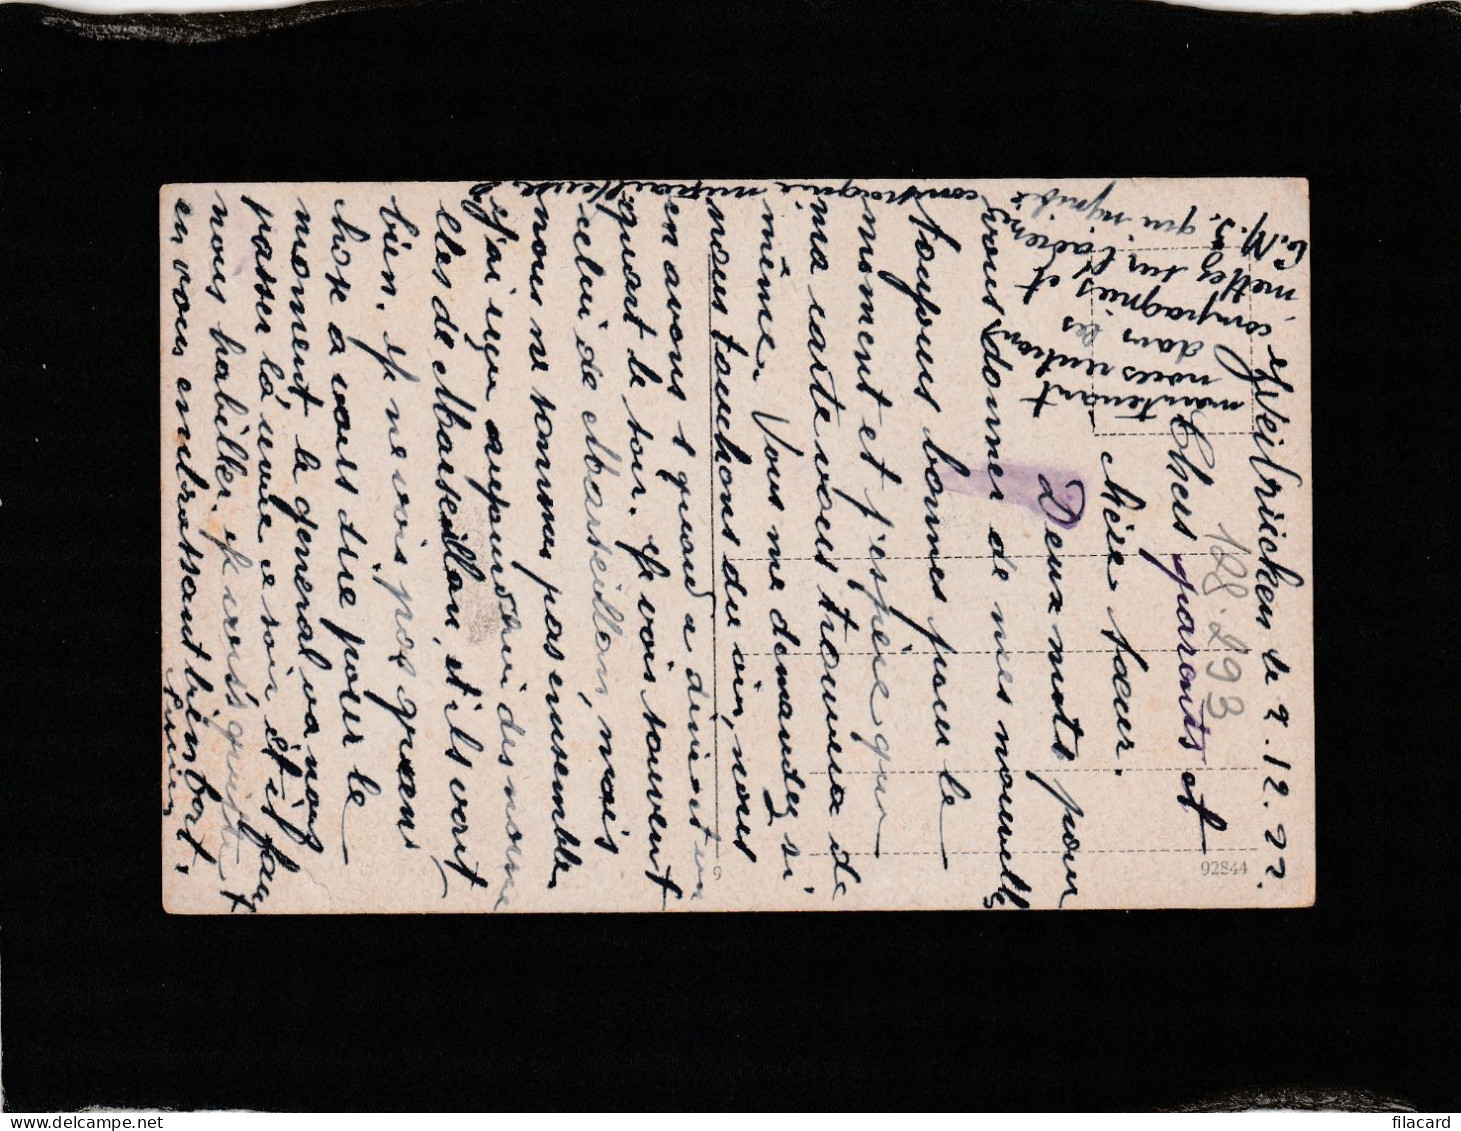 Zweibrücken le 9.12.22.
Chers parents et
chère sœur.
Deux mots pour
vous donner de mes nouvelles
toujours bonnes pour le
moment et j'espère que
ma carte vous trouvera de
même. Vous me demandez si
nous touchons du vin, nous
en avons 1 quand a dinert un
quart le soir. Je vois souvent
celui de Marseillan, mais
nous ne sommes pas ensemble.
j'ai reçu aujourd'hui des nouve
lles de Marseillan, et ils vont
bien. Je ne vois pas grand
chose a vous dire pour le
moment, le general va nous
passer la revue ce soir et il faut
nous habiller. Je crois quitte
en vous embrassant bien fort.
maintenant
nous rentrons
dans les
compagnies et
mettez sur l'adresse
C.M.3. qui signifie
compagnie mitrailleuse 3
198.293
9
92844
filacard